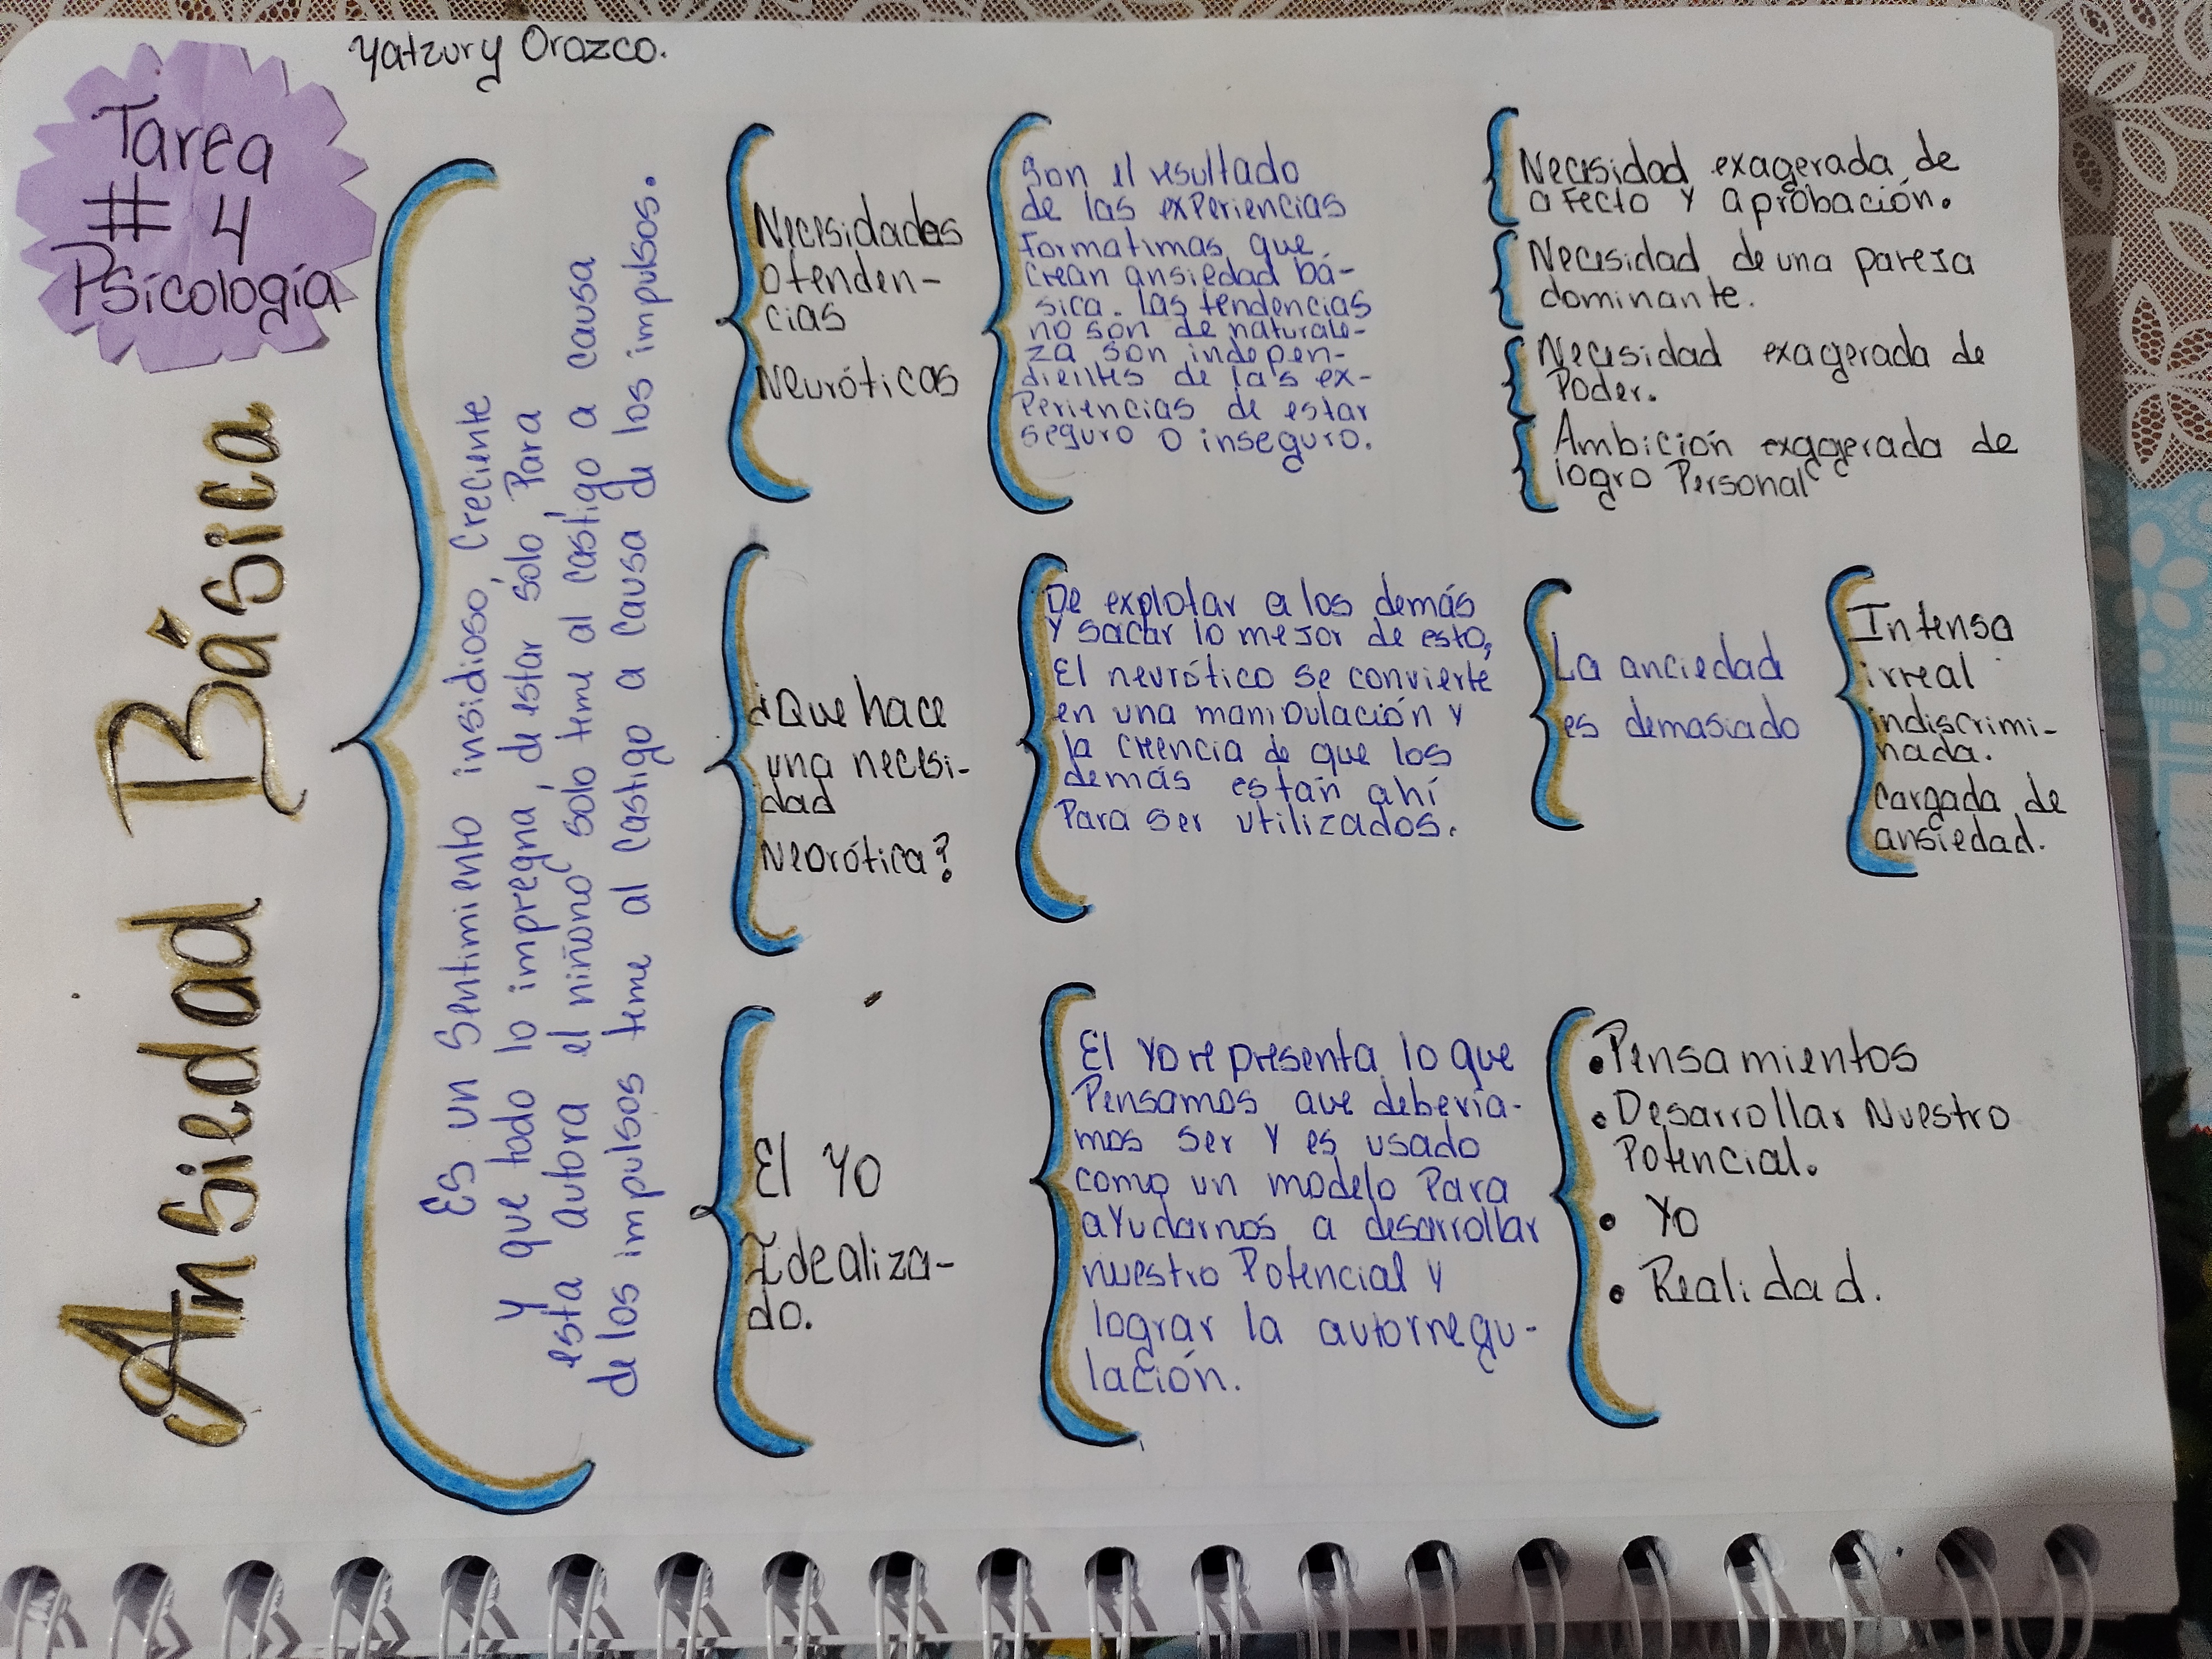 Yatzury Orozco.
Tarea
# 4
Psicología
Ansiedad Básica
Es un Sentimiento insidioso, Creciente
y que todo lo impregna, de estar sólo Para
esta autora el niñono sólo teme al castigo a causa
de los impulsos teme al castigo a causa de los impulsos.
Necesidades
otenden-
cias
Neuróticas
Son el resultado
de las experiencias
Formatimas que
crean ansiedad bá-
sica. las tendencias
no son de naturale-
za son indepen-
dientes de las ex-
Periencias de estar
seguro o inseguro.
Necesidad exagerada de
afecto y aprobación.
Necesidad de una pareja
dominante.
Necesidad exagerada de
Poder.
Ambición exagerada de
logro Personal
¿Que hace
una necesi-
dad
Neorótica?
De explotar a los demás
y sacar lo mejor de esto,
El neurótico se convierte
en una manipulación y
la creencia de que los
demás están ahí
Para ser utilizados.
La anciedad
es demasiado
Intensa
irreal
indiscrimi-
nada.
cargada de
ansiedad.
El Yo
Idealiza-
do.
El Yo representa lo que
Pensamos que debería-
mos ser y es usado
como un modelo Para
ayudarnos a desarrollar
nuestro Potencial y
lograr la autorregu-
lación.
•Pensamientos
•Desarrollar Nuestro
Potencial.
• Yo
• Realidad.